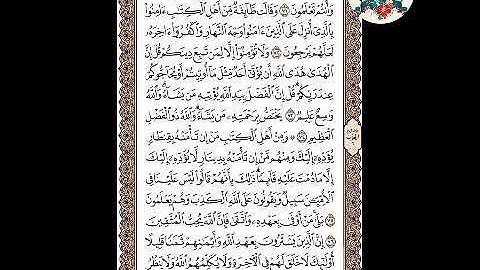 وَأَنتُمْ تَعْلَمُونَ ۝ وَقَالَت طَّآئِفَةٌ مِّنْ أَهْلِ ٱلْكِتَٰبِ ءَامِنُوا۟
بِٱلَّذِىٓ أُنزِلَ عَلَى ٱلَّذِينَ ءَامَنُوا۟ وَجْهَ ٱلنَّهَارِ وَٱكْفُرُوٓا۟ ءَاخِرَهُۥ
لَعَلَّهُمْ يَرْجِعُونَ ۝ وَلَا تُؤْمِنُوٓا۟ إِلَّا لِمَن تَبِعَ دِينَكُمْ قُلْ إِنَّ
ٱلْهُدَىٰ هُدَى ٱللَّهِ أَن يُؤْتَىٰٓ أَحَدٌ مِّثْلَ مَآ أُوتِيتُمْ أَوْ يُحَآجُّوكُمْ
عِندَ رَبِّكُمْ ۗ قُلْ إِنَّ ٱلْفَضْلَ بِيَدِ ٱللَّهِ يُؤْتِيهِ مَن يَشَآءُ ۗ وَٱللَّهُ
وَٰسِعٌ عَلِيمٌ ۝ يَخْتَصُّ بِرَحْمَتِهِۦ مَن يَشَآءُ ۗ وَٱللَّهُ ذُو ٱلْفَضْلِ
ٱلْعَظِيمِ ۝ وَمِنْ أَهْلِ ٱلْكِتَٰبِ مَنْ إِن تَأْمَنْهُ بِقِنطَارٍ
يُؤَدِّهِۦٓ إِلَيْكَ وَمِنْهُم مَّنْ إِن تَأْمَنْهُ بِدِينَارٍ لَّا يُؤَدِّهِۦٓ إِلَيْكَ
إِلَّا مَا دُمْتَ عَلَيْهِ قَآئِمًا ۗ ذَٰلِكَ بِأَنَّهُمْ قَالُوا۟ لَيْسَ عَلَيْنَا فِى
ٱلْأُمِّيِّۦنَ سَبِيلٌ وَيَقُولُونَ عَلَى ٱللَّهِ ٱلْكَذِبَ وَهُمْ يَعْلَمُونَ
۝ بَلَىٰ مَنْ أَوْفَىٰ بِعَهْدِهِۦ وَٱتَّقَىٰ فَإِنَّ ٱللَّهَ يُحِبُّ ٱلْمُتَّقِينَ
۝ إِنَّ ٱلَّذِينَ يَشْتَرُونَ بِعَهْدِ ٱللَّهِ وَأَيْمَٰنِهِمْ ثَمَنًا قَلِيلًا
أُو۟لَٰٓئِكَ لَا خَلَٰقَ لَهُمْ فِى ٱلْءَاخِرَةِ وَلَا يُكَلِّمُهُمُ ٱللَّهُ وَلَا يَنظُرُ